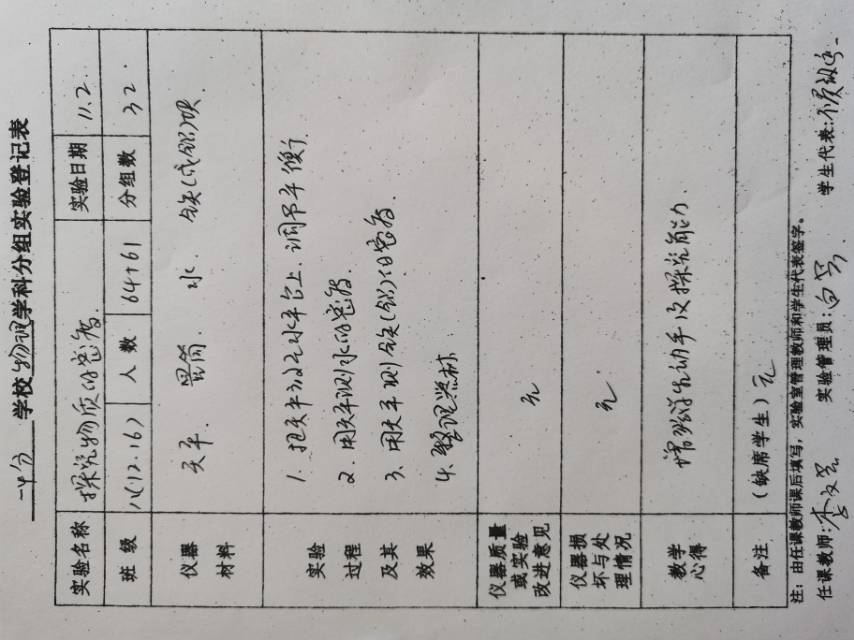 二十分学校物理学科分组实验登记表
实验名称 探究物质的密度 实验日期 11.2
班级 八(12.16) 人数 64+61 分组数 32
仪器材料 天平. 量筒. 水. 铁(或铝)块
实验过程及其效果
1. 把天平放在水平台上.调节平衡
2. 用天平测水的密度.
3. 用天平测铁(铝)的密度.
4. 整理器材
仪器质量或实验改进意见 无
仪器损坏与处理情况 无.
教学心得 增强学生动手及探究能力.
备注 (缺席学生)无
注：由任课教师课后填写，实验室管理教师和学生代表签字。
任课教师: 实验管理员: 学生代表: